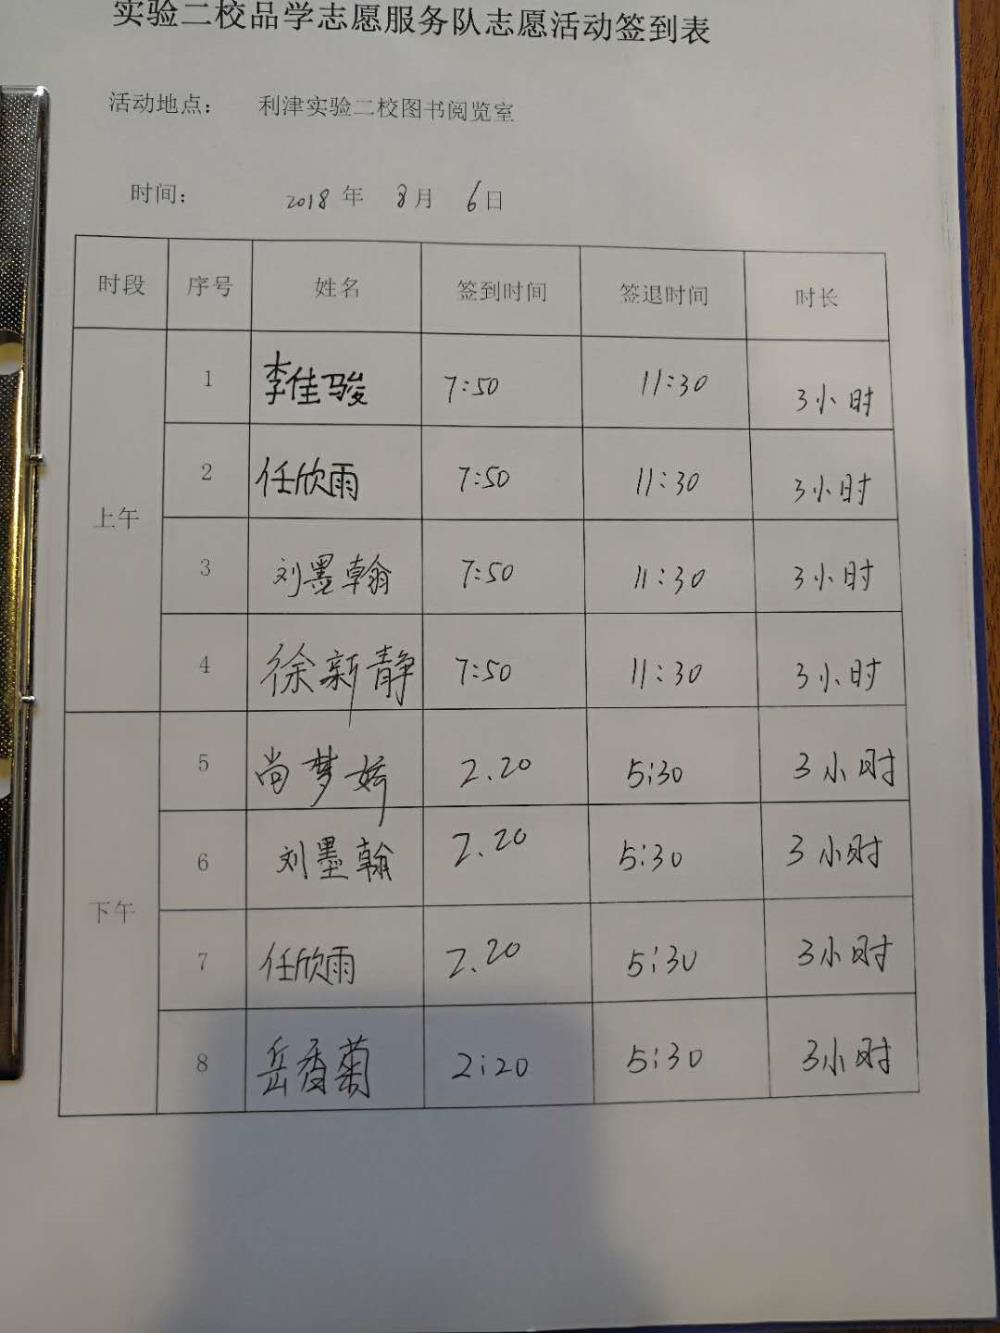 实验二校品学志愿服务队志愿活动签到表
活动地点: 利津实验二校图书阅览室
时间: 2018 年 8月 6日
时段 序号 姓名 签到时间 签退时间 时长
上午
1 李佳骏 7:50 11:30 3小时
2 任欣雨 7:50 11:30 3小时
3 刘墨翰 7:50 11:30 3小时
4 徐新静 7:50 11:30 3小时
下午
5 尚梦娇 2.20 5:30 3小时
6 刘墨翰 2.20 5:30 3小时
7 任欣雨 2.20 5:30 3小时
8 岳香菊 2:20 5:30 3小时